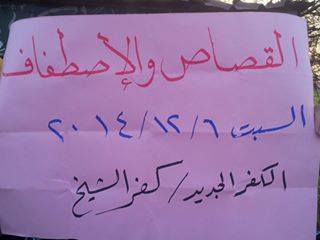 القصاص والإصطفاف
السبت ٢٠١٤/١٢/٦
الكفر الجديد / كفر الشيخ